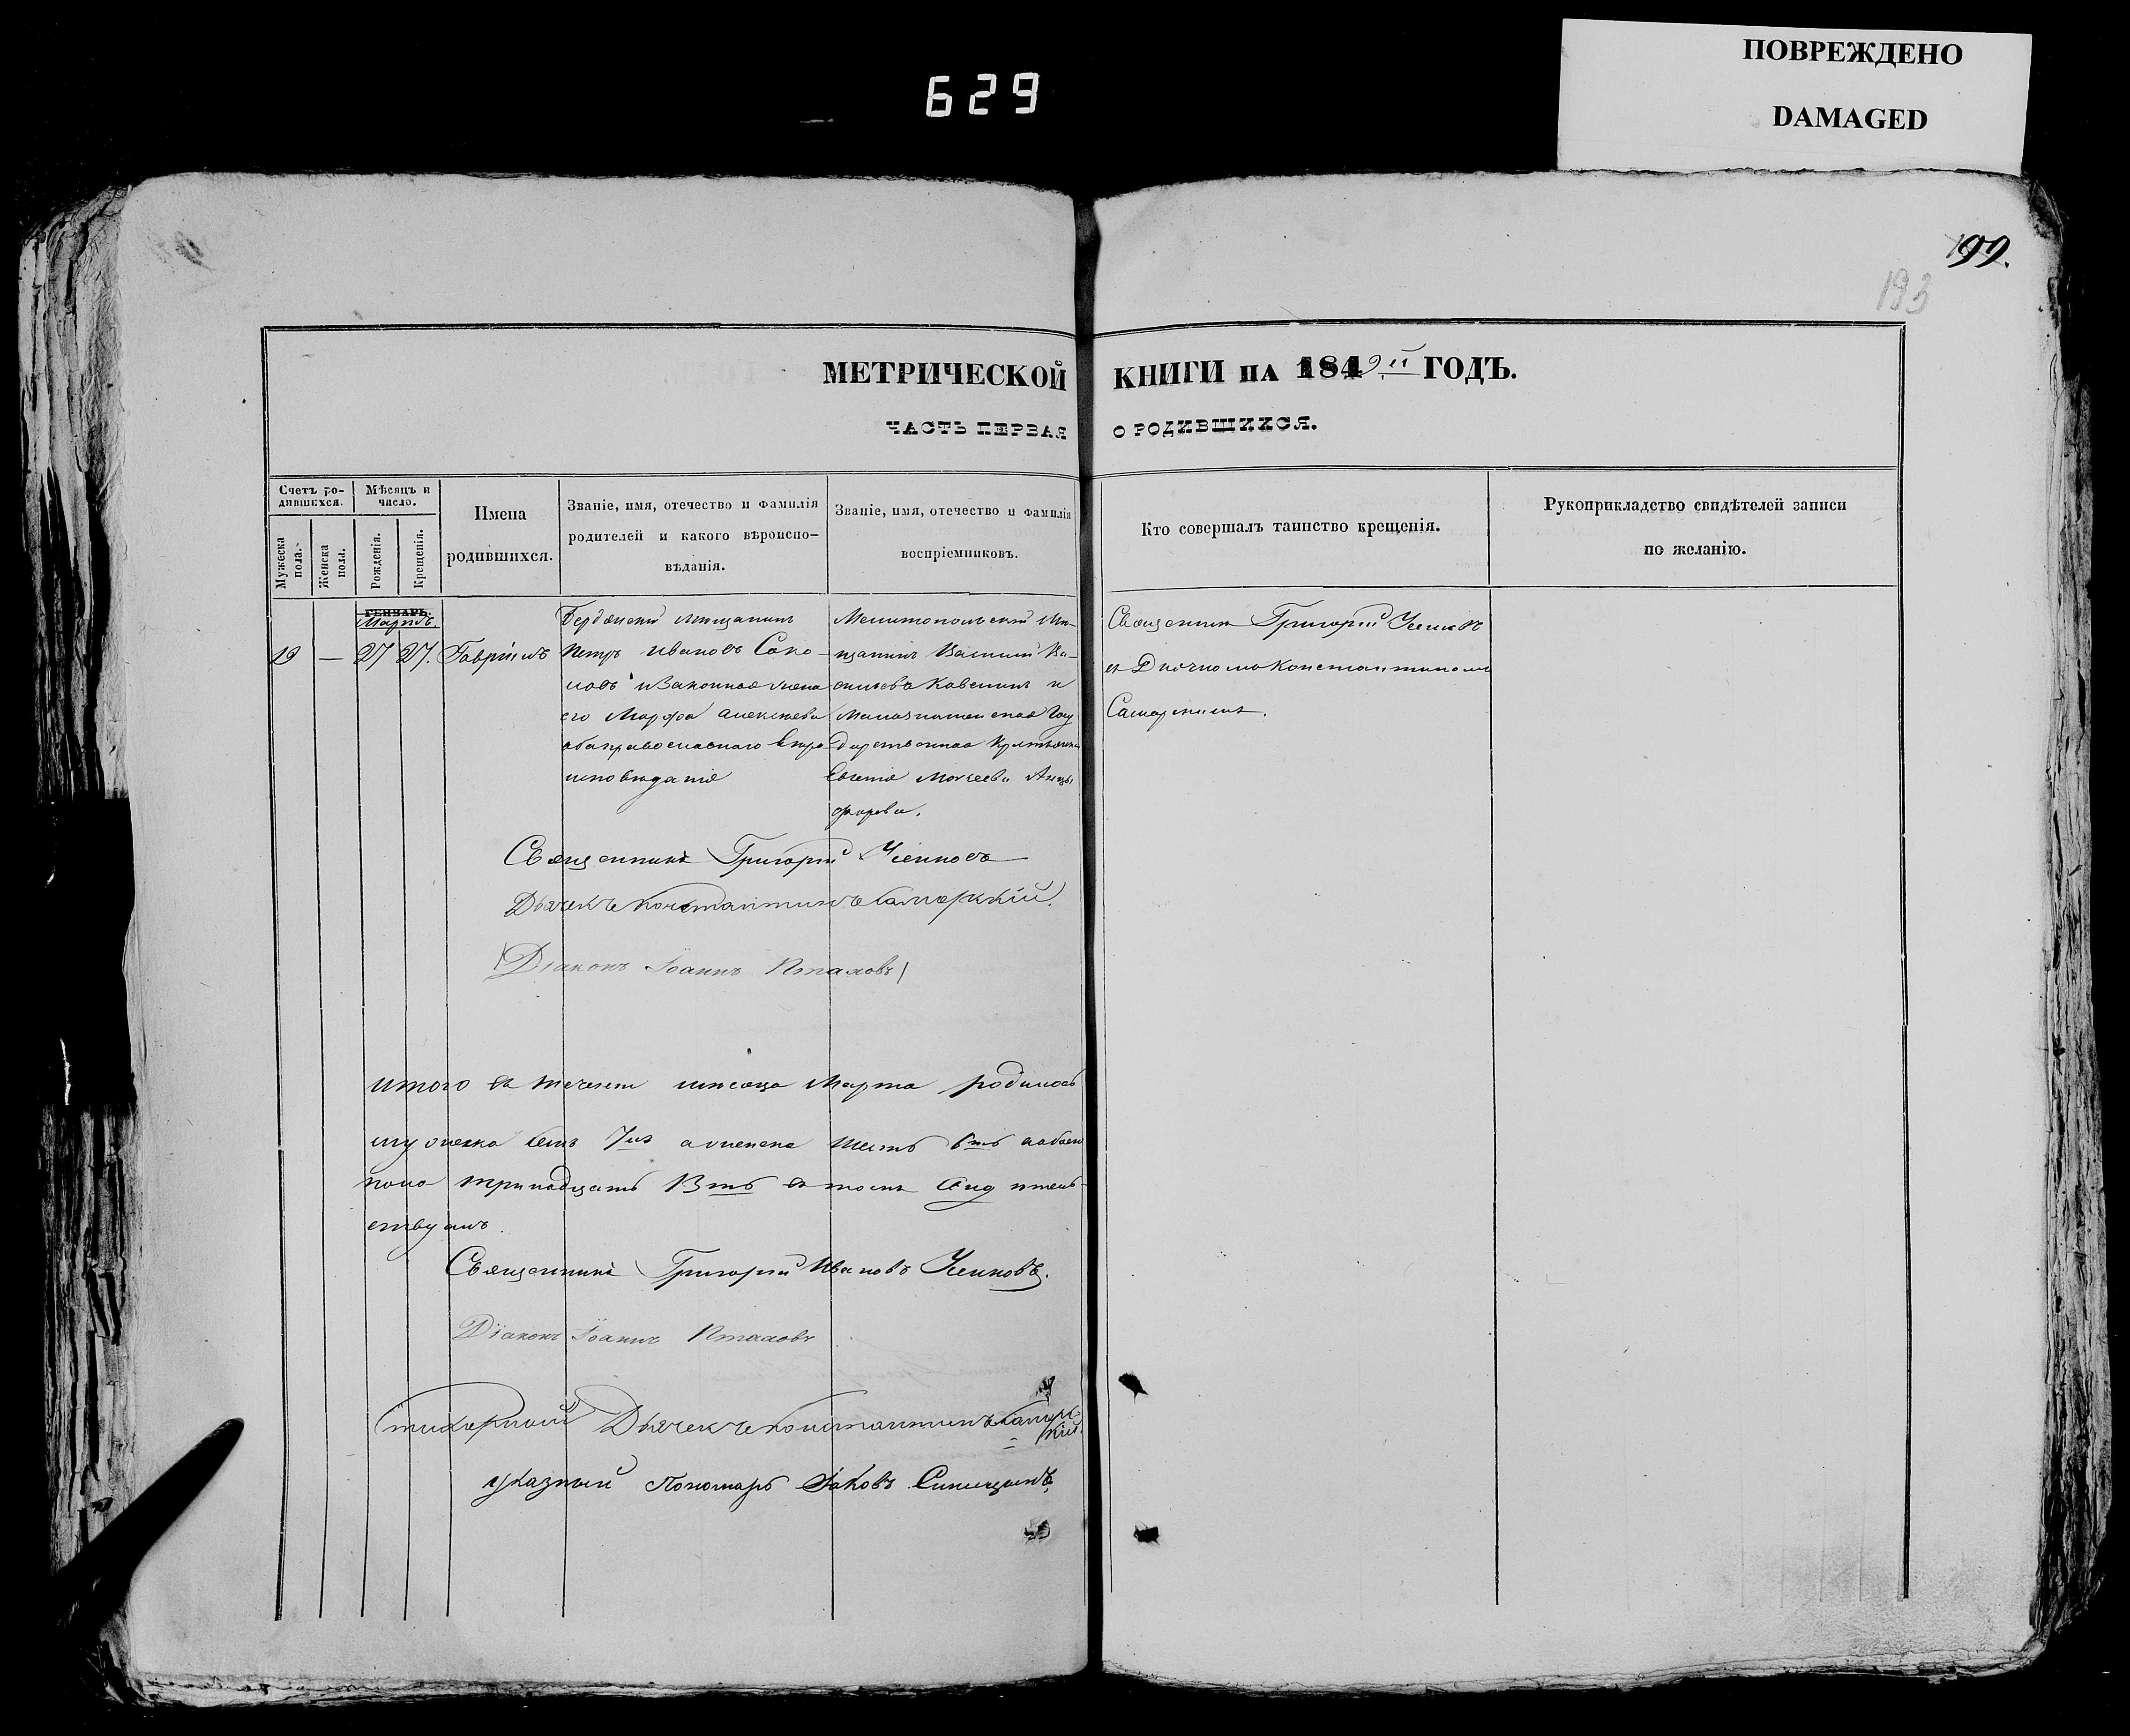 ПОВРЕЖДЕНО
DAMAGED
629
199.
193
МЕТРИЧЕСКОЙ КНИГИ НА 1849й ГОДЪ.
ЧАСТЬ ПЕРВАЯ О РОДИВШИХСЯ.
Счетъ ро-
дившихся.
Мужеска
пола.
Женска
пола.
Мѣсяцъ и
число.
Рожденія.
Крещенія.
Имена
родившихся.
Званіе, имя, отечество и фамилія
родителей и какого вѣроиспо-
вѣданія.
Званіе, имя, отечество и фамилія
воспріемниковъ.
Кто совершалъ таинство крещенія.
Рукоприкладство свидѣтелей записи
по желанію.
ГЕНВАРЬ.
Мартъ.
19 — 27 27. Гавріилъ
Бердянскій мещанинъ
Петръ Ивановъ Соко-
ловъ и законная жена
его Марфа Алексѣева
оба православнаго вѣро
исповѣданія
Мелитопольскій мѣ-
щанинъ Василій Ва-
сильевъ и
Госу
дарственная крестьянка
Евгенія Моисеева
форова.
Священникъ Григорій Усиков
съ Дьячкомъ Константиномъ
Самарскимъ.
Священникъ Григорій Усиковъ
Дьячекъ Константинъ Самарскій.
Діаконъ Іоаннъ Пталовъ
итого въ теченіи мѣсяца Марта родилось
мужеска семь 7мь а женска шесть 6ть а обоего
пола тринадцать 13ть въ томъ
ствуемъ.
Священникъ Григорій Ивановъ Усиковъ.
Діаконъ Іоаннъ Пталовъ
Стихарный Дьячекъ Константинъ Самарс
кій.
указный Пономарь Іаковъ Синицынъ